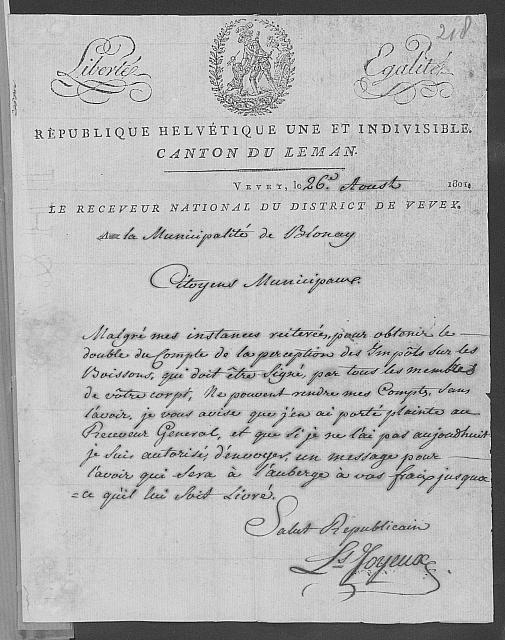 218
Liberté Egalité
RÉPUBLIQUE HELVÉTIQUE UNE ET INDIVISIBLE.
CANTON DU LEMAN.
VEVEY, le 26.e Aoust 1801.
LE RECEVEUR NATIONAL DU DISTRICT DE VEVEY.
A la Municipalité de Blonay
Citoyens Municipaux.
Malgré mes instances reiterées, pour obtenir le
double du Compte de la perception des Impôts sur les
Boissons, qui doit être Signé, par tous les membres
de vôtre corps, Ne pouvant rendre mes Compts, sans
l'avoir, je vous avise que j'en ai porté plainte au
Receveur General, et que si je ne l'ai pas aujoudhuit
je suis autorisé, d'envoyer, un message pour
l'avoir qui sera à l'auberge à vos fraix jusqua
=ce qu'il lui soit Livré.
Salut Republicain
Ls Joyeux